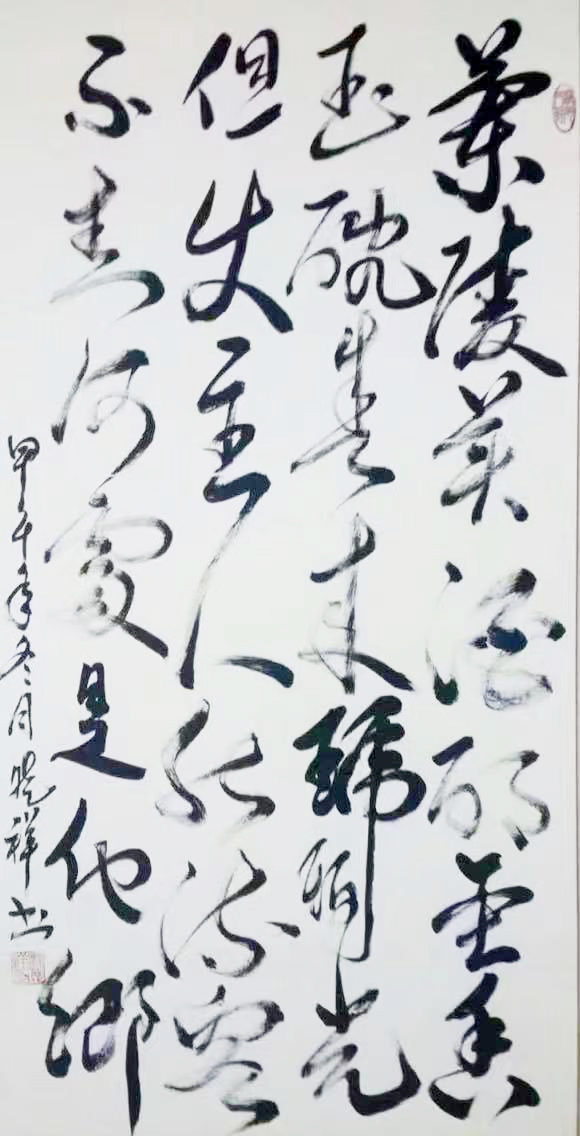 蘭陵美酒郁金香
玉碗盛来琥珀光
但使主人能醉客
不知何處是他鄉
甲午年冬月晓祥书